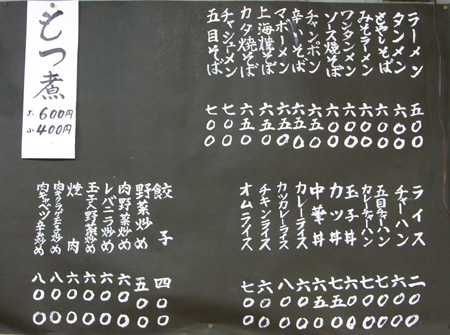 もつ煮
大600円
小400円
ラーメン 五〇〇
タンメン 六〇〇
もやしそば 六〇〇
みそラーメン 六〇〇
ワンタンメン 六〇〇
ソース焼そば 六〇〇
チャンポン 六五〇
辛いそば 六五〇
マボラーメン 六五〇
上海焼そば 六五〇
カタ焼そば 六五〇
チャシューメン 七〇〇
五目そば 七〇〇
ライス 二〇〇
チャーハン 六〇〇
五目チャーハン 七〇〇
カレーチャーハン 七〇〇
玉子丼 六〇〇
カツ丼 七五〇
中華丼 六五〇
カレーライス 六〇〇
カツカレーライス 八〇〇
チキンライス 六〇〇
オムライス 七〇〇
餃子 四〇〇
野菜炒め 五〇〇
肉野菜炒め 六〇〇
レバニラ炒め 六〇〇
玉子入野菜炒め 六〇〇
焼肉 六〇〇
肉キクラゲ玉子炒め 八〇〇
肉キャベツ辛子炒め 八〇〇